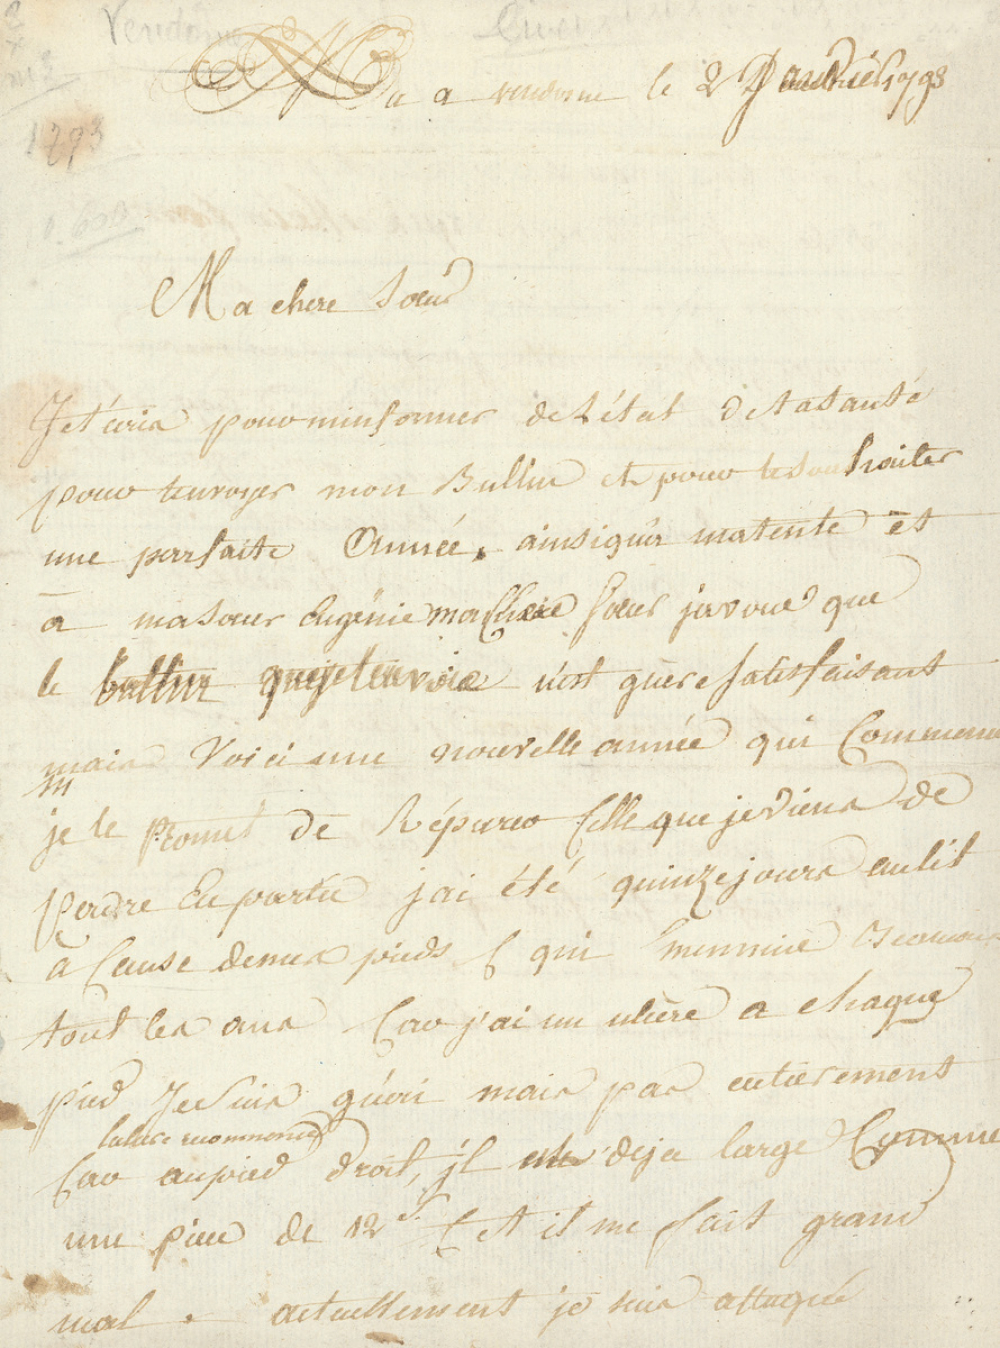 Vendome
1793
Du a vendome le 2 Janvié 1793
Ma chere Soeur
Je t'ecris pour minformer de l'état detasanté
pour tenvoyer mon Bulltin et pour te souhaiter
une parfaite Année, ainsiqu'a matente et
a masoeur Eugénie ma Chere soeur j'avoue que
le bulltin queje tenvoie n'est guère satisfaisant
mais Voici une nouvelle année qui Commence
je te promet de Réparer Celle que je viens de
perdre En partie j'ai été quinze jours au lit
à Cause demes pieds C qui
tout les ans Car j'ai un ulcère a chaque
pied Je suis guéri mais pas entièrement
lulcere recommence
Car aupied droit, jl est deja large Comme
une piece de 12 s. Et il me fait grand
mal. actuellement je suis attaqué